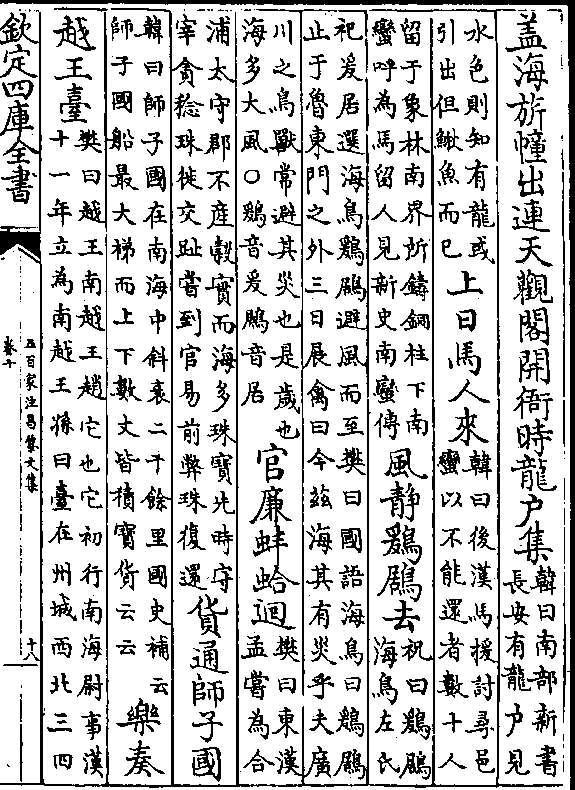 盖海旂幢出連天觀閣開衙時龍户集
韓曰南部新書
長安有龍户見
水色則知有龍或
引出但鰍魚而已
上日馬人來
韓曰後漢馬援討尋邑
蠻以不能還者數十人
留于象林南界所鑄銅柱下南
蠻呼為馬留人見新史南蠻傳
風静鶢鶋去
祝曰鶢鶋
海鳥左氏
祀爰居選海鳥鶢鶋避風而至樊曰國語海鳥曰鶢鶋
止于魯東門之外三日展禽曰今兹海其有災乎夫廣
川之鳥獸常避其災也是歲也
海多大風○鶢音爰鶋音居
官廉蚌蛤迴
樊曰東漢
孟嘗為合
浦太守郡不產穀實而海多珠寶先時守
宰貪穢珠徙交趾嘗到官易前弊珠復還
貨通師子國
韓曰師子國在南海中斜袤二千餘里國史補云
師子國船最大梯而上下數丈皆積寶貨云云
樂奏
越王臺
樊曰越王南越王趙它也它初行南海尉事漢
十一年立為南越王孫曰臺在州城西北三四
欽定四庫全書
五百家注昌黎文集
卷十
十八